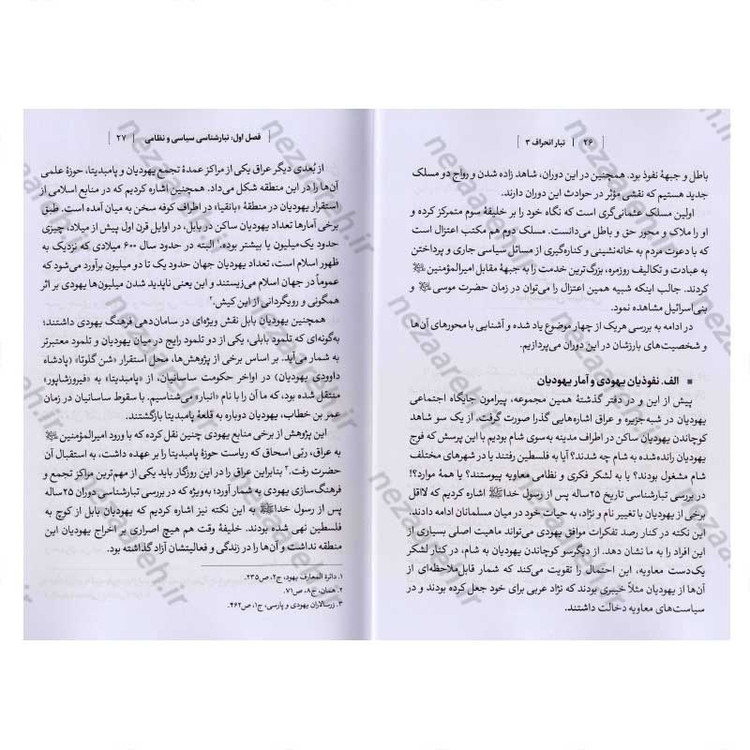 ۲۶ | تبار انحراف ۳
باطل و جبههٔ نفوذ بود. همچنین در این دوران، شاهد زاده شدن و رواج دو مسلک
جدید هستیم که نقشی مؤثر در حوادث این دوران دارند.
اولین مسلک عثمانی‌گری است که نگاه خود را بر خلیفهٔ سوم متمرکز کرده و
او را ملاک و محور حق و باطل می‌دانست. مسلک دوم هم مکتب اعتزال است
که با دعوت مردم به خانه‌نشینی و کناره‌گیری از مسائل سیاسی جاری و پرداختن
به عبادت و تکالیف روزمره، بزرگ‌ترین خدمت را به جبههٔ مقابل امیرالمؤمنین ﷺ
کردند. جالب اینکه شبیه همین اعتزال را می‌توان در زمان حضرت موسی ﷺ و
بنی‌اسرائیل مشاهده نمود.
در ادامه به بررسی هریک از چهار موضوع یاد شده و آشنایی با محورهای آن‌ها
و شخصیت‌های بارزشان در این دوران می‌پردازیم.
الف. نفوذیان یهودی و آمار یهودیان
پیش از این و در دفتر گذشتهٔ همین مجموعه، پیرامون جایگاه اجتماعی
یهودیان در شبه‌جزیره و عراق اشاره‌هایی گذرا صورت گرفت. از یک سو شاهد
کوچاندن یهودیان ساکن در اطراف مدینه به‌سوی شام بودیم با این پرسش که فوج
یهودیان رانده‌شده به شام چه شدند؟ آیا به فلسطین رفتند یا در شهرهای مختلف
شام مشغول بودند؟ یا به لشکر فکری و نظامی معاویه پیوستند؟ یا همهٔ موارد؟!
در بررسی تبارشناسی تاریخ ۲۵ساله پس از رسول خداﷺ اشاره کردیم که لااقل
برخی از یهودیان با تغییر نام و نژاد، به حیات خود در میان مسلمانان ادامه دادند.
این نکته در کنار رصد تفکرات موافق یهودی می‌تواند ماهیت اصلی بسیاری از
این افراد را به ما نشان دهد. از دیگرسو کوچاندن یهودیان به شام، در کنار لشکر
یک‌دست معاویه، این احتمال را تقویت می‌کند که شمار قابل‌ملاحظه‌ای از
آن‌ها از یهودیان مثلاً خیبری بودند که نژاد عربی برای خود جعل کرده بودند و در
سیاست‌های معاویه دخالت داشتند.
فصل اول: تبارشناسی سیاسی و نظامی | ۲۷
از بُعدی دیگر عراق یکی از مراکز عمدهٔ تجمع یهودیان و پامبدیتا، حوزهٔ علمی
آن‌ها را در این منطقه شکل می‌داد. همچنین اشاره کردیم که در منابع اسلامی از
استقرار یهودیان در منطقهٔ «بانقیا» در اطراف کوفه سخن به میان آمده است. طبق
برخی آمارها تعداد یهودیان ساکن در بابل، در اوایل قرن اول پیش از میلاد، چیزی
حدود یک‌میلیون یا بیشتر بوده؛۱ البته در حدود سال ۶۰۰ میلادی که نزدیک به
ظهور اسلام است، تعداد یهودیان جهان حدود یک تا دو میلیون برآورد می‌شود که
عموماً در جهان اسلام می‌زیستند و این یعنی ناپدید شدن میلیون‌ها یهودی بر اثر
همگونی و رویگردانی از این کیش.۲
همچنین یهودیان بابل نقش ویژه‌ای در سامان‌دهی فرهنگ یهودی داشتند؛
به‌گونه‌ای که تلمود بابلی، یکی از دو تلمود رایج در میان یهودیان و تلمود معتبرتر
به شمار می‌آید. بر اساس برخی از پژوهش‌ها، محل استقرار «شن گلوتا» (پادشاه
داوودی یهودیان) در اواخر حکومت ساسانیان، از «پامبدیتا» به «فیروزشاپور»
منتقل شده بود، که ما آن را با نام «انبار» می‌شناسیم. با سقوط ساسانیان در زمان
عمر بن خطاب، یهودیان دوباره به قلعهٔ پامبدیتا بازگشتند.
این پژوهش از برخی منابع یهودی چنین نقل کرده که با ورود امیرالمؤمنین ﷺ
به عراق، ربّی اسحاق که ریاست حوزهٔ پامبدیتا را بر عهده داشت، به استقبال آن
حضرت رفت.۳ بنابراین عراق را در این روزگار باید یکی از مهم‌ترین مراکز تجمع و
فرهنگ‌سازی یهودی به شمار آورد؛ به‌ویژه که در بررسی تبارشناسی دوران ۲۵ساله
پس از رسول خداﷺ به این نکته نیز اشاره کردیم که یهودیان بابل از کوچ به
فلسطین نهی شده بودند. خلیفهٔ وقت هم هیچ اصراری بر اخراج یهودیان این
منطقه نداشت و آن‌ها را در زندگی و فعالیتشان آزاد گذاشته بود.
۱. دائرة المعارف یهود، ج۲، ص۲۳۵.
۲. همان، ج۸، ص۷۱.
۳. زرسالاران یهودی و پارسی، ج۱، ص۴۶۲.
nezaareh.ir